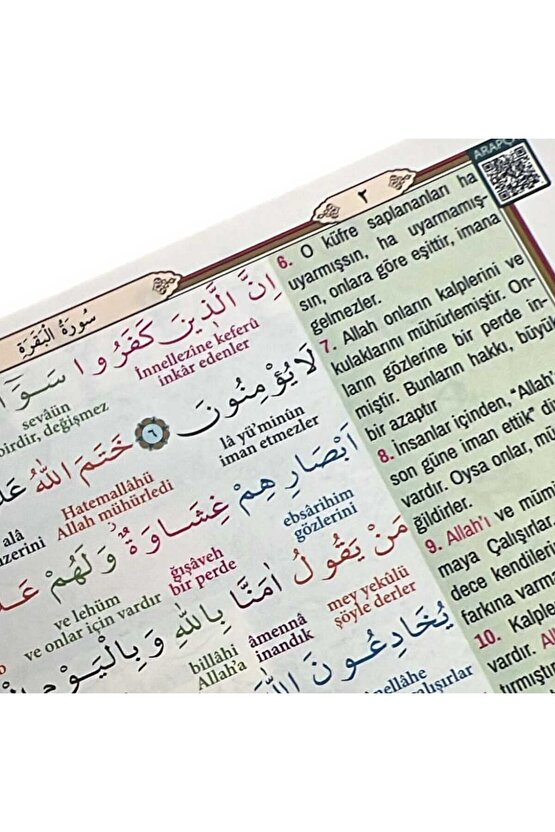 ARAPÇ
٢
سُورَةُ الْبَقَرَةِ
اِنَّ الَّذٖينَ كَفَرُوا سَوَٓا
İnnellezine keferû
inkâr edenler
sevâün
birdir, değişmez
لَا يُؤْمِنُونَ ٦ خَتَمَ اللّٰهُ عَلٰ
lâ yü'minûn
iman etmezler
Hatemallâhü
Allah mühürledi
alâ
üzerini
اَبْصَارِهِمْ غِشَاوَةٌ وَلَهُمْ عَذَ
ebsârihim
gözlerini
ğışâveh
bir perde
ve lehüm
ve onlar için vardır
مَنْ يَقُولُ اٰمَنَّا بِاللّٰهِ وَبِالْيَوْمِ
mey yekülü
şöyle derler
âmennâ
inandık
billâhi
Allah'a
يُخَادِعُونَ اللّٰهَ
6. O küfre saplananları ha
uyarmışsın, ha uyarmamış-
sın, onlara göre eşittir, imana
gelmezler.
7. Allah onların kalplerini ve
kulaklarını mühürlemiştir. On-
ların gözlerine bir perde in-
miştir. Bunların hakkı, büyü
bir azaptır
8. İnsanlar içinden, "Allah'
son güne iman ettik" di
vardır. Oysa onlar, mü
ğildirler.
9. Allah'ı ve mümi
maya Çalışırlar
dece kendileri
farkına varm
10. Kalpl
vardır. Al
tırmıştı